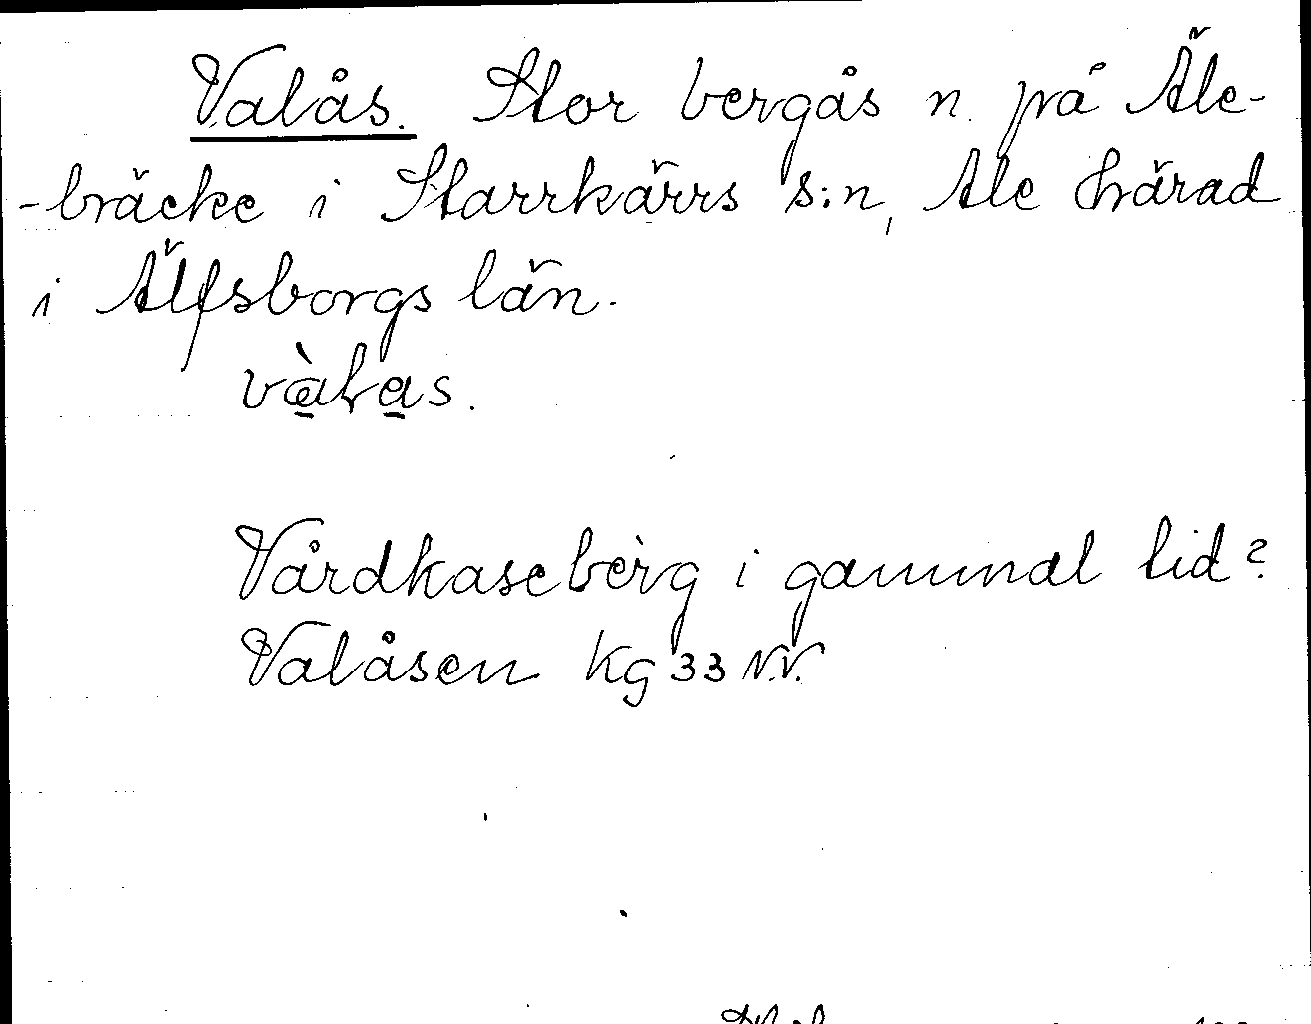 Valås. Stor bergås n. på Äle-
-bräcke i Starrkärrs s:n, Ale härad
i Älfsborgs län.
Vårdkaseberg i gammal tid?
Valåsen Kg 33 N.V.